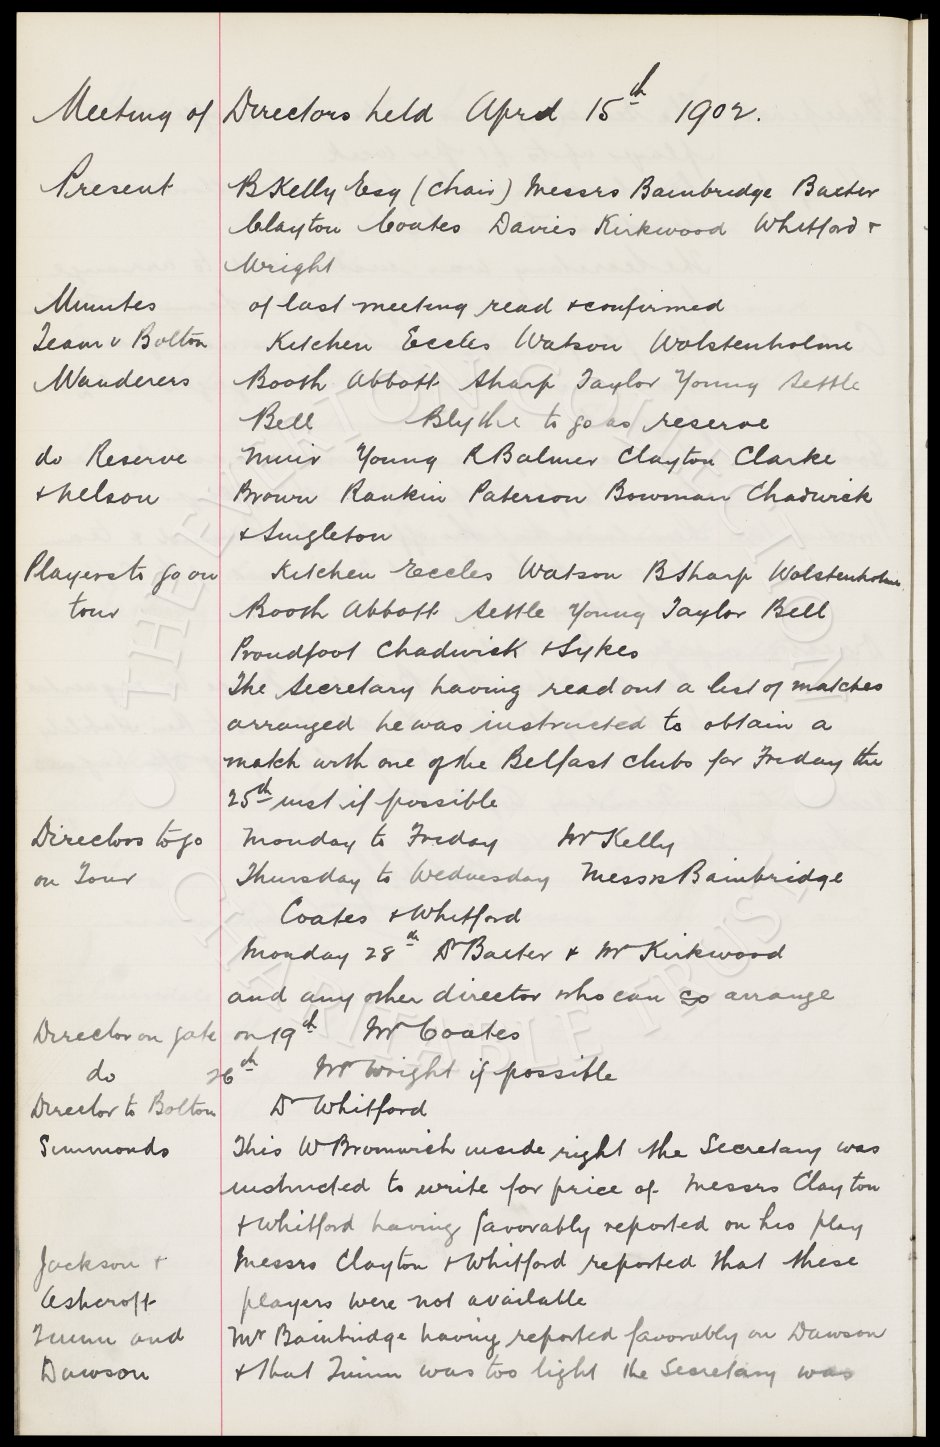 Meeting of Directors held April 15th 1902.
Present B Kelly Esq (Chair) Messrs Bainbridge Baxter
Clayton Coates Davies Kirkwood Whitford &
Wright
Minutes of last meeting read & confirmed
Team v Bolton Kitchen Eccles Watson Wolstenholme
Wanderers Booth Abbott Sharp Taylor Young Settle
Bell Blythe to go as reserve
do Reserve Muir Young R Balmer Clayton Clarke
& Nelson Brown Rankin Paterson Bowman Chadwick
& Singleton
Players to go on Kitchen Eccles Watson B Sharp Wolstenholme
tour Booth Abbott Settle Young Taylor Bell
Proudfoot Chadwick & Sykes
The Secretary having read out a list of matches
arranged he was instructed to obtain a
match with one of the Belfast clubs for Friday the
25th inst if possible
Directors to go Monday to Friday Mr Kelly
on Tour Thursday to Wednesday Messrs Bainbridge
Coates & Whitford
Monday 28th Dr Baxter & Mr Kirkwood
and any other director who can so arrange
Director on gate on 19th Mr Coates
do 26th Mr Wright if possible
Director to Bolton Dr Whitford
Simmonds This W Bromwich inside right the Secretary was
instructed to write for price of Messrs Clayton
& Whitford having favorably reported on his play
Jackson & Messrs Clayton & Whitford reported that these
Ashcroft players were not available
and Mr Bainbridge having reported favorably on Dawson
Dawson & that was too light the Secretary was
THE EVERTON COLLECTION
CHARITABLE TRUST